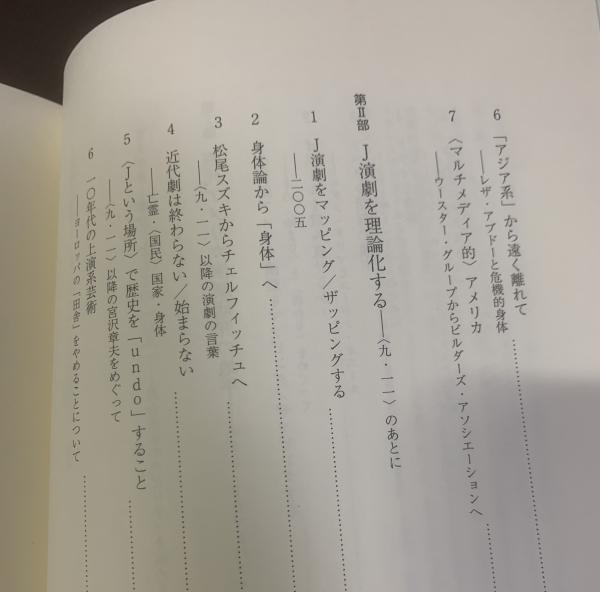 6 「アジア系」から遠く離れて
――レザ・アブドーと危機的身体
7 〈マルチメディア的〉アメリカ
――ウースター・グループからビルダーズ・アソシエーションへ
第Ⅱ部 J演劇を理論化する――〈九・一一〉のあとに
1 J演劇をマッピング/ザッピングする
――二〇〇五
2 身体論から「身体」へ
3 松尾スズキからチェルフィッチュへ
――〈九・一一〉以降の演劇の言葉
4 近代劇は終わらない/始まらない
――亡霊・〈国民〉国家・身体
5 〈Jという場所〉で歴史を「undo」すること
――〈九・一一〉以降の宮沢章夫をめぐって
6 一〇年代の上演系芸術
――ヨーロッパの「田舎」をやめることについて